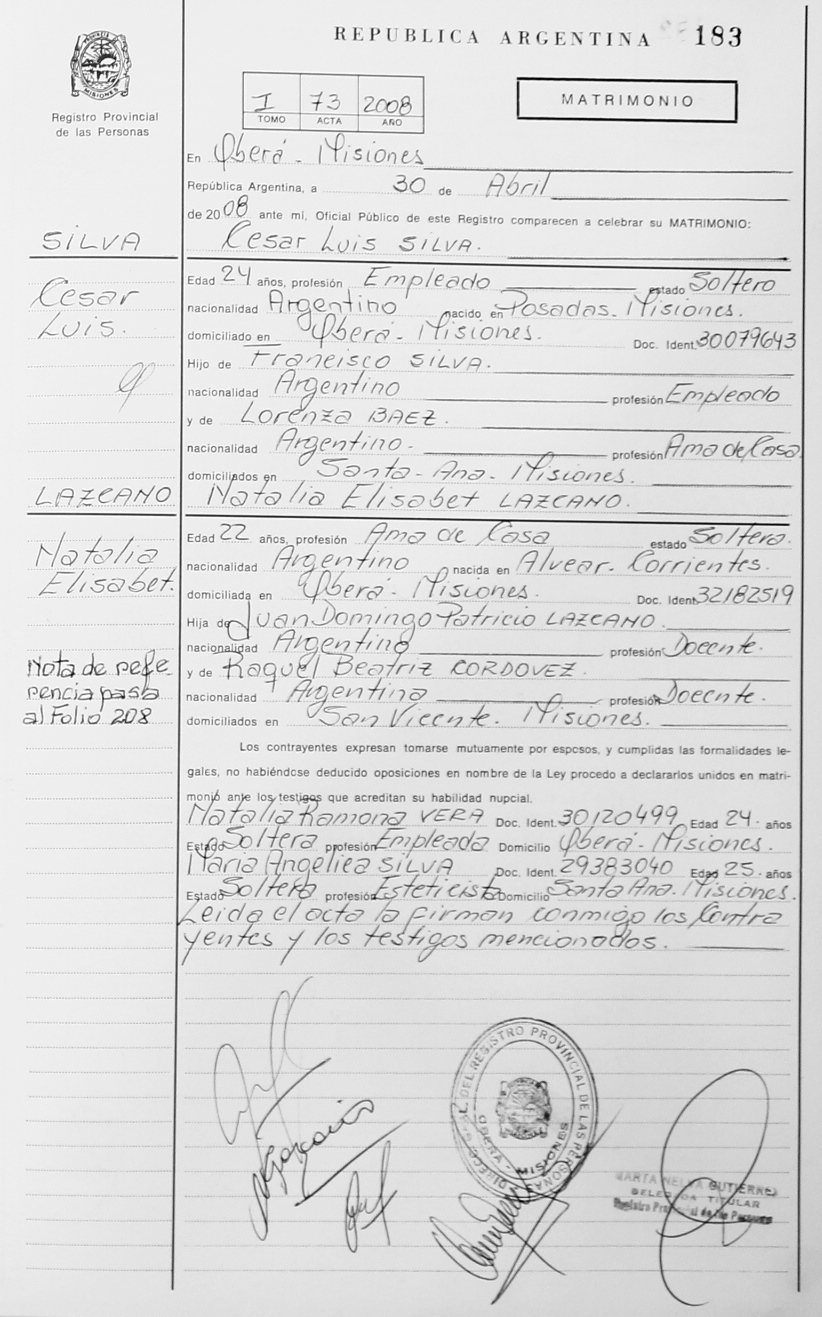 REPUBLICA ARGENTINA 183
PROVINCIA DE MISIONES
Registro Provincial
de las Personas
I 73 2008
TOMO ACTA AÑO
MATRIMONIO
En Oberá - Misiones
República Argentina, a 30 de Abril
de 2008 ante mí, Oficial Público de este Registro comparecen a celebrar su MATRIMONIO:
SILVA
Cesar Luis SILVA.
Cesar
Luis.
Edad 24 años, profesión Empleado estado Soltero
nacionalidad Argentino nacido en Posadas. Misiones.
domiciliado en Oberá - Misiones. Doc. Ident. 30079643
Hijo de Francisco SILVA.
nacionalidad Argentino profesión Empleado
y de Lorenza BAEZ.
nacionalidad Argentino. profesión Ama de Casa
domiciliados en Santa - Ana - Misiones.
LAZCANO
Natalia Elisabet LAZCANO.
Natalia
Elisabet.
Edad 22 años, profesión Ama de Casa estado Soltera.
nacionalidad Argentino nacida en Alvear. Corrientes.
domiciliada en Oberá - Misiones. Doc. Ident. 32182519
Hija de Juan Domingo Patricio LAZCANO.
nacionalidad Argentino profesión Docente.
y de Raquel Beatriz CORDOVEZ.
nacionalidad Argentina profesión Docente.
domiciliados en San Vicente. Misiones.
Nota de refe
rencia pasa
al Folio 208
Los contrayentes expresan tomarse mutuamente por esposos, y cumplidas las formalidades le-
gales, no habiéndose deducido oposiciones en nombre de la Ley procedo a declararlos unidos en matri-
monio ante los testigos que acreditan su habilidad nupcial.
Natalia Ramona VERA Doc. Ident. 30120499 Edad 24. años
Estado Soltera profesión Empleada Domicilio Oberá - Misiones.
Maria Angelica SILVA Doc. Ident. 29383040 Edad 25. años
Estado Soltera profesión Esteticista Domicilio Santa Ana. Misiones.
Leida el acta la firman conmigo los Contra
yentes y los testigos mencionados.
DIRECC. GRAL. DEL REGISTRO PROVINCIAL DE LAS PERSONAS
OBERA - MISIONES
MARTA NELVA GUTIERREZ
DELEGADA TITULAR
Registro Provincial de las Personas